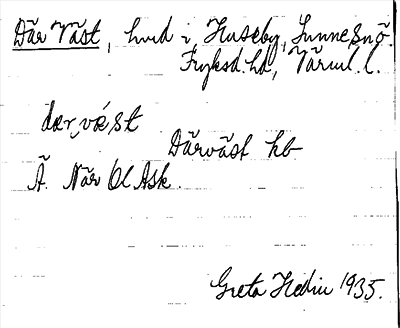 Där Väst, hmd i Huseby, Sunne snö.
Fryksd. hd, Värml. l.
dær væst
Därväst hb
Ä. När Ol Ask.
Greta Hedin 1935.